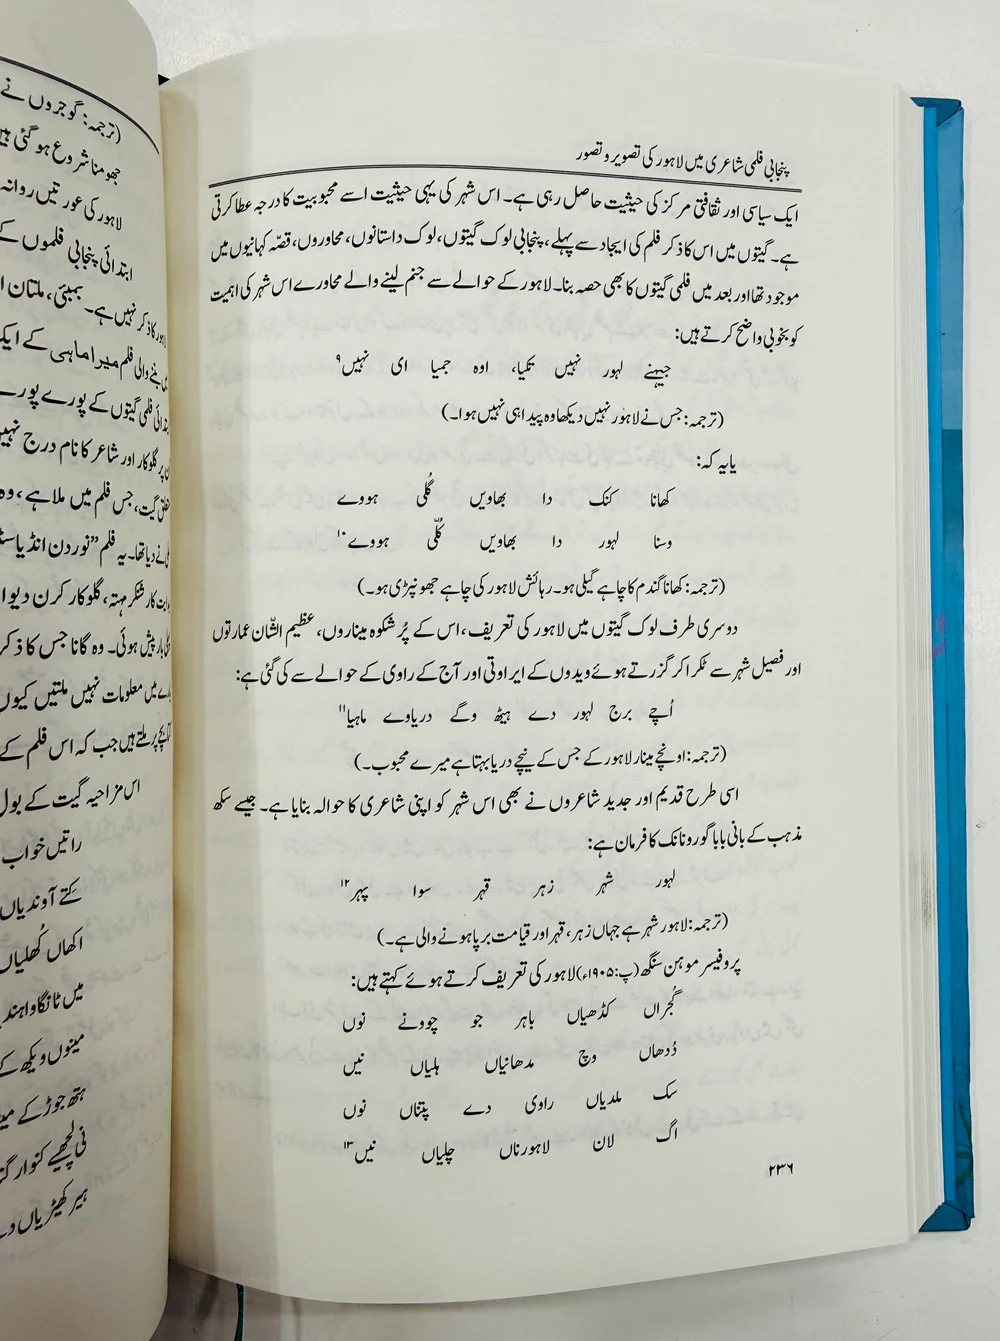 پنجابی فلمی شاعری میں لاہور کی تصویر و تصور
ایک سیاسی اور ثقافتی مرکز کی حیثیت حاصل رہی ہے۔ اس شہر کی یہی حیثیت اسے محبوبیت کا درجہ عطا کرتی
ہے۔ گیتوں میں اس کا ذکر فلم کی ایجاد سے پہلے، پنجابی لوک گیتوں، لوک داستانوں، محاوروں، قصّہ کہانیوں میں
موجود تھا اور بعد میں فلمی گیتوں کا بھی حصہ بنا۔ لاہور کے حوالے سے جنم لینے والے محاورے اس شہر کی اہمیت
کو بخوبی واضح کرتے ہیں:
جیہنے لہور نہیں تکیا، اوہ جمیا ای نہیں۹
(ترجمہ: جس نے لاہور نہیں دیکھا وہ پیدا ہی نہیں ہوا۔)
یا یہ کہ:
کھانا کنک دا بھاویں گُلی ہووے
وسنا لہور دا بھاویں کُلّی ہووے۱۰
(ترجمہ: کھانا گندم کا چاہے گیلی ہو۔ رہائش لاہور کی چاہے جھونپڑی ہو۔)
دوسری طرف لوک گیتوں میں لاہور کی تعریف، اس کے پُر شکوہ میناروں، عظیم الشّان عمارتوں
اور فصیل شہر سے ٹکرا کر گزرتے ہوئے ویدوں کے ایراوتی اور آج کے راوی کے حوالے سے کی گئی ہے:
اُچے برج لہور دے ہیٹھ وگے دریاوے ماہیا۱۱
(ترجمہ: اونچے مینار لاہور کے جس کے نیچے دریا بہتا ہے میرے محبوب۔)
اسی طرح قدیم اور جدید شاعروں نے بھی اس شہر کو اپنی شاعری کا حوالہ بنایا ہے۔ جیسے سکھ
مذہب کے بانی بابا گورو نانک کا فرمان ہے:
لہور شہر زہر قہر سوا پہر۱۲
(ترجمہ: لاہور شہر ہے جہاں زہر، قہر اور قیامت برپا ہونے والی ہے۔)
پروفیسر موہن سنگھ (پ: ۱۹۰۵ء) لاہور کی تعریف کرتے ہوئے کہتے ہیں:
گُجراں کڈھیاں باہر جو چوونے نوں
دُدھاں وچ مدھانیاں ہلیاں نیں
سک ملدیاں راوی دے پتناں نوں
اگ لان لاہورناں چلیاں نیں۱۳
۲۳۶
(ترجمہ: گوجروں نے
جھومنا شروع ہو گئی ہیں
لاہور کی عورتیں روانہ
ابتدائی پنجابی فلموں کے
کا ذکر نہیں ہے۔ بمبئی، ملتان
والی فلم میرا ماہی کے ایک
فلمی گیتوں کے پورے پورے
پر گلوکار اور شاعر کا نام درج نہیں
گیت، جس فلم میں ملا ہے، وہ
دیا تھا۔ یہ فلم ”نوردن انڈیا
کار شنکر مہتہ، گلوکار کرن دیوا
پیش ہوئی۔ وہ گانا جس کا ذکر
میں معلومات نہیں ملتیں کیوں
پر ملتے ہیں جب کہ اس فلم کے
اس مزاحیہ گیت کے بول
راتیں خواب
کتے آوندیاں
اکھاں کُھلیاں
میں ٹانگا واہندا
مینوں ویکھ کے
ہتھ جوڑ کے
نی لچھیے کنوار
ہیر کھیڑیاں